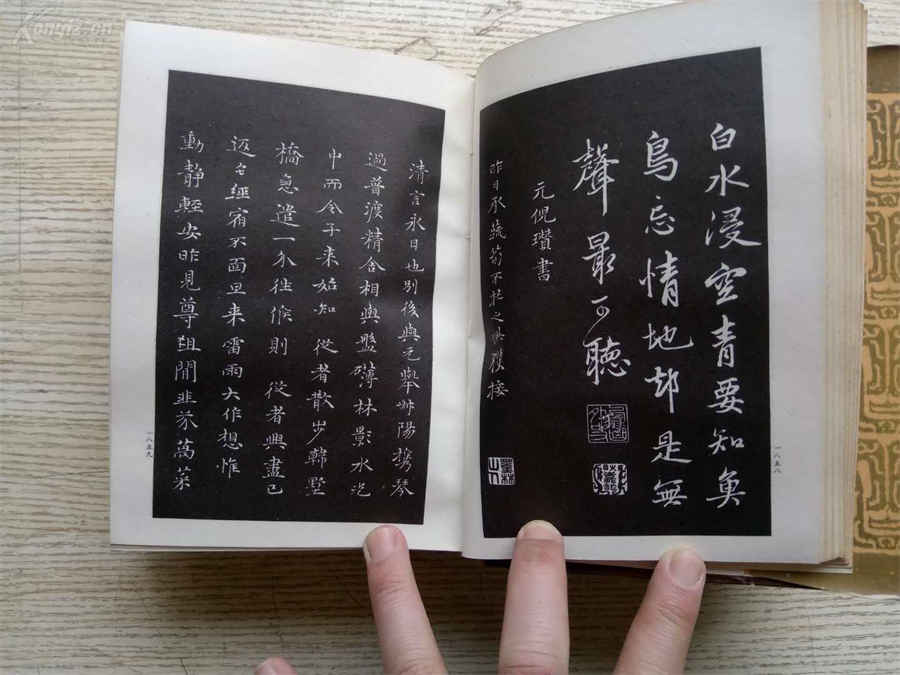 白水浸空青要知魚
鳥忘情地却是無
聲最可聽
元倪瓚書
昨日承蔬筍不托之供獲接
一八五八
清言永日也別後與元舉艸陽携琴
過普渡精舍相與盤礴林影水光
中而令子來始知從者散步韓墅
橋急遣一介往候則從者興盡已
返它經宿不面旦來雷雨大作想惟
動靜輕安昨見尊俎間韭芥萵菜
一八五九